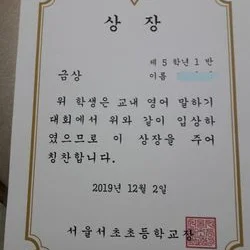 상 장
제 5 학년 1 반
금상 이름
위 학생은 교내 영어 말하기
대회에서 위와 같이 입상하
였으므로 이 상장을 주어
칭찬합니다.
2019년 12월 2일
서울서초초등학교장